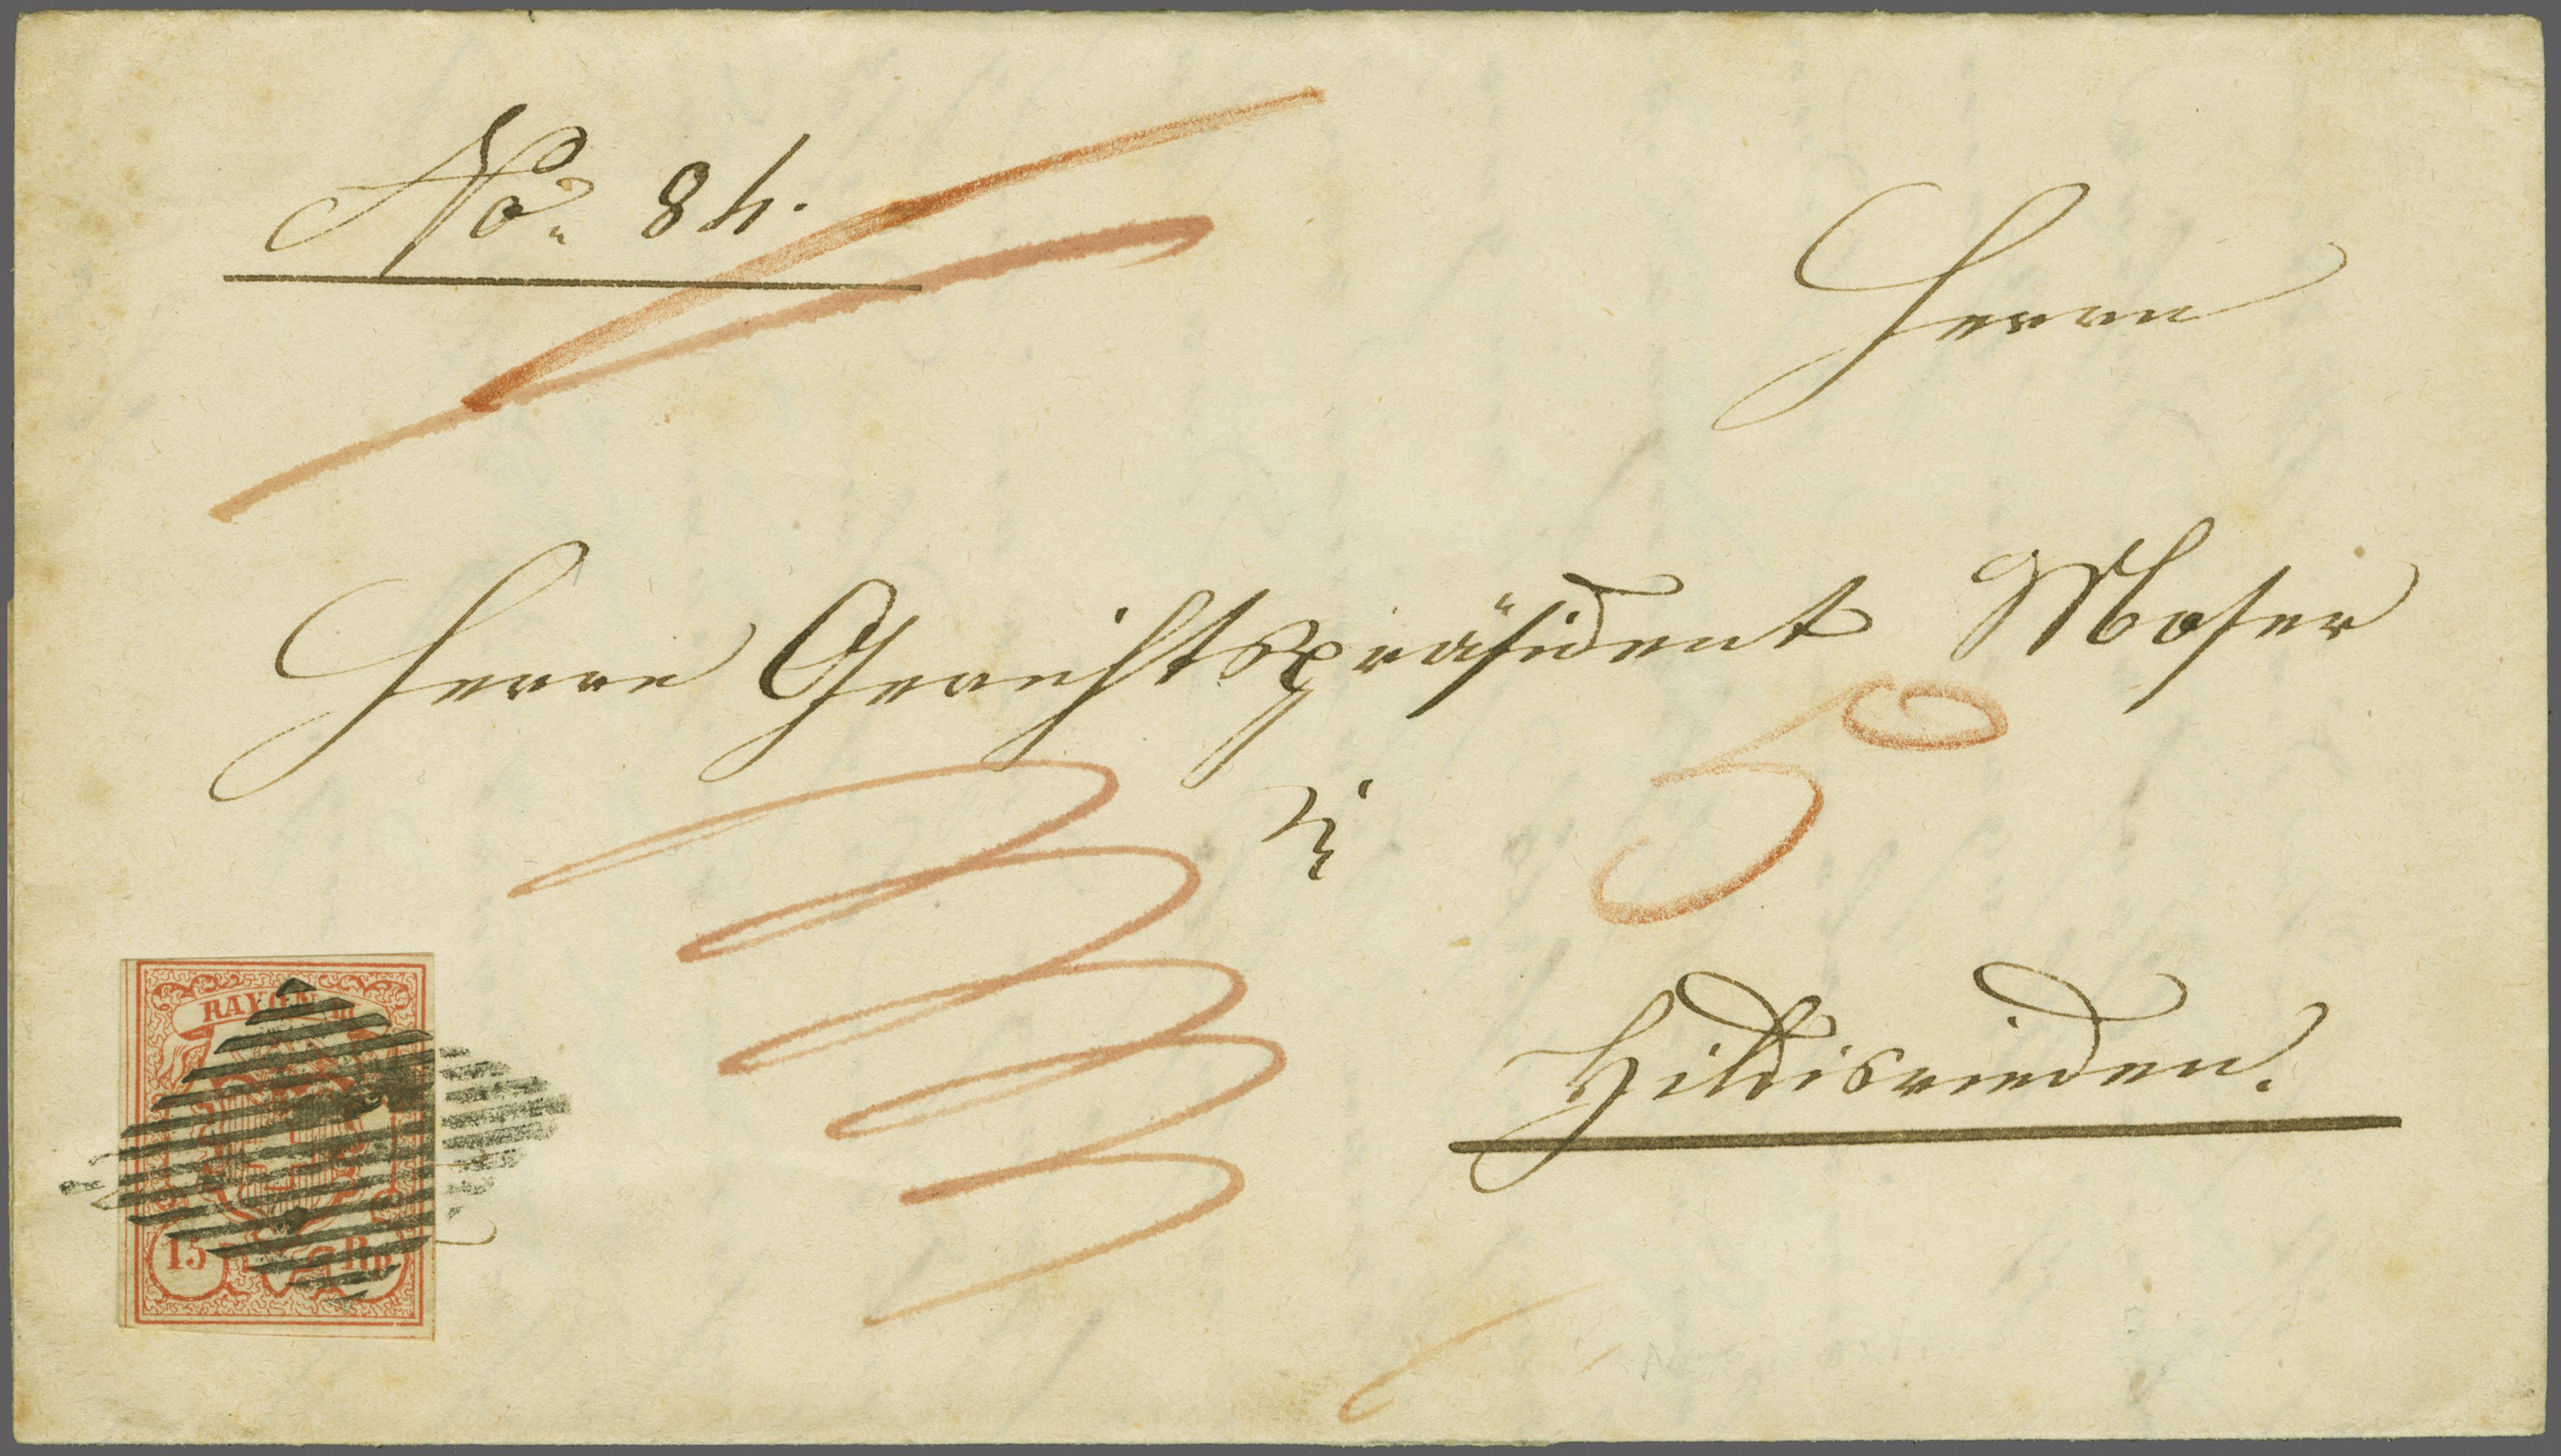 No. 84.
Herrn
Herrn Gerichtspräsident Moser
in
Hildisrieden.
50
RAYON III
15 Rp